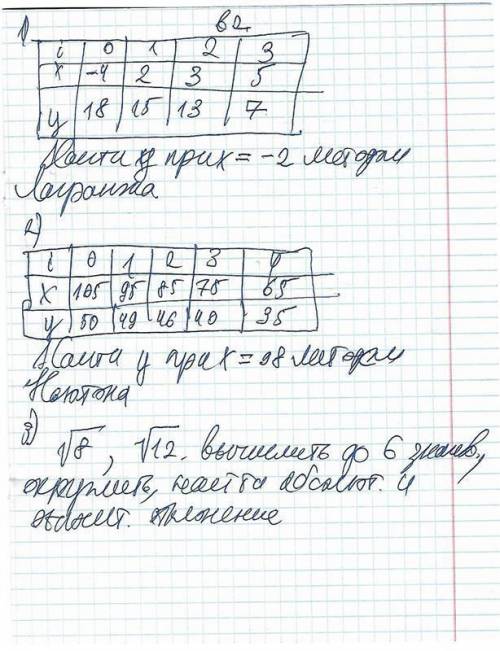 В2.
1)
i 0 1 2 3
x -4 2 3 5
y 18 15 13 7
Найти y при x = -2 методом
Лагранжа
2)
i 0 1 2 3
x 105 95 85 75 65
y 50 49 46 40 35
Найти y при x = 98 методом
Ньютона
3)
√8, √12. вычислить до 6 знаков,
округлить, найти абсолют. и
отклонение